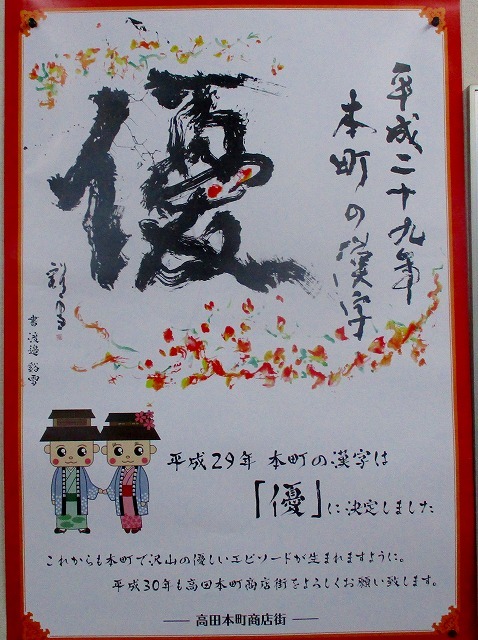 平成二十九年
本町の漢字
優
書 渡邉
平成29年 本町の漢字は
「優」に決定しました
これからも本町で沢山の優しいエピソードが生まれますように。
平成30年も高田本町商店街をよろしくお願い致します。
高田本町商店街